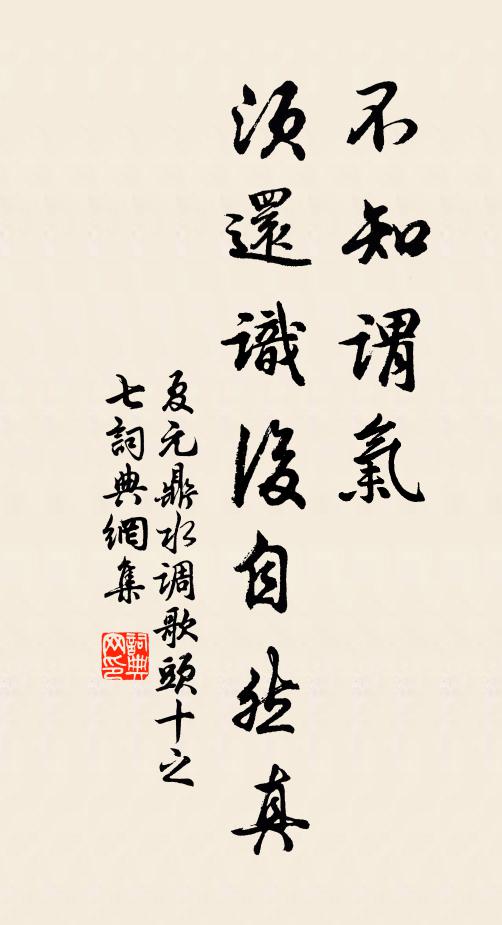 不知謂氣
須還識後自然真
夏元鼎水调歌頭十之
七詞典網集
詞典
网印